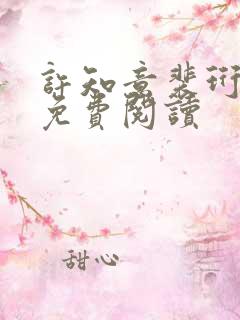 許知意裴珩
免費閱讀
甜心